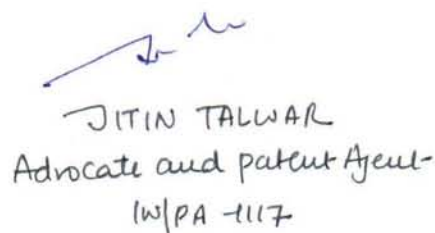 JITIN TALWAR
Advocate and patent Agent
IN/PA -1117